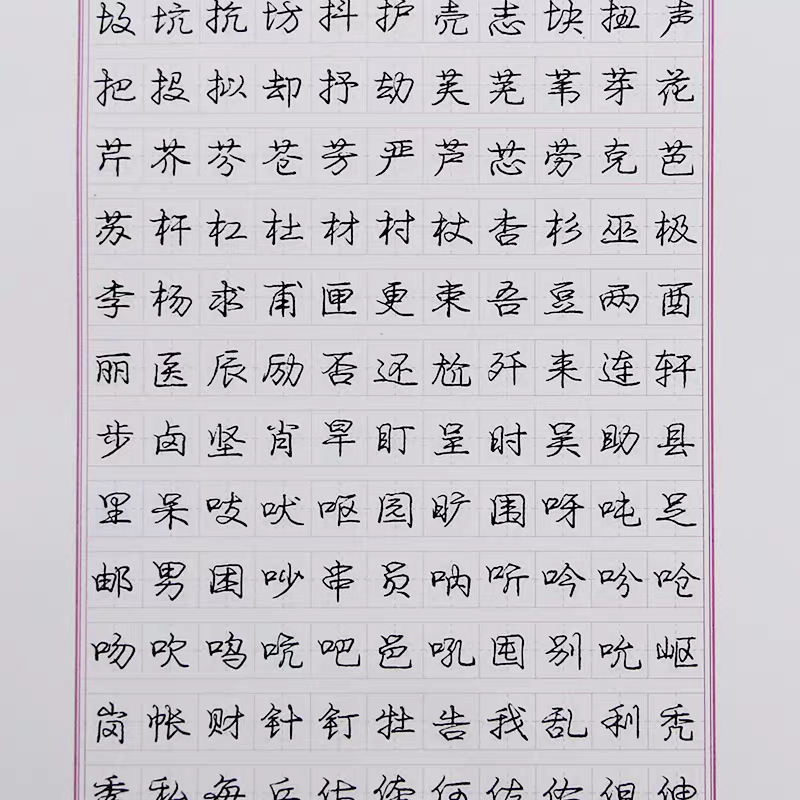 坟坑抗坊抖护壳志块扭声
把投拟却抒劫芙芜苇芽花
芹芥芬苍芳严芦芯劳克芭
苏杆杠杜材村杖杏杉巫极
李杨求甫匣更束吾豆两酉
丽医辰励否还尬歼来连轩
步卤坚肖旱盯呈时吴助县
里呆吱吠呕园旷围呀吨足
邮男困吵串员呐听吟吩呛
吻吹呜吭吧邑吼囤别吮岖
岗帐财针钉牡告我乱利秃
秀私每兵估体何佐佑但伸